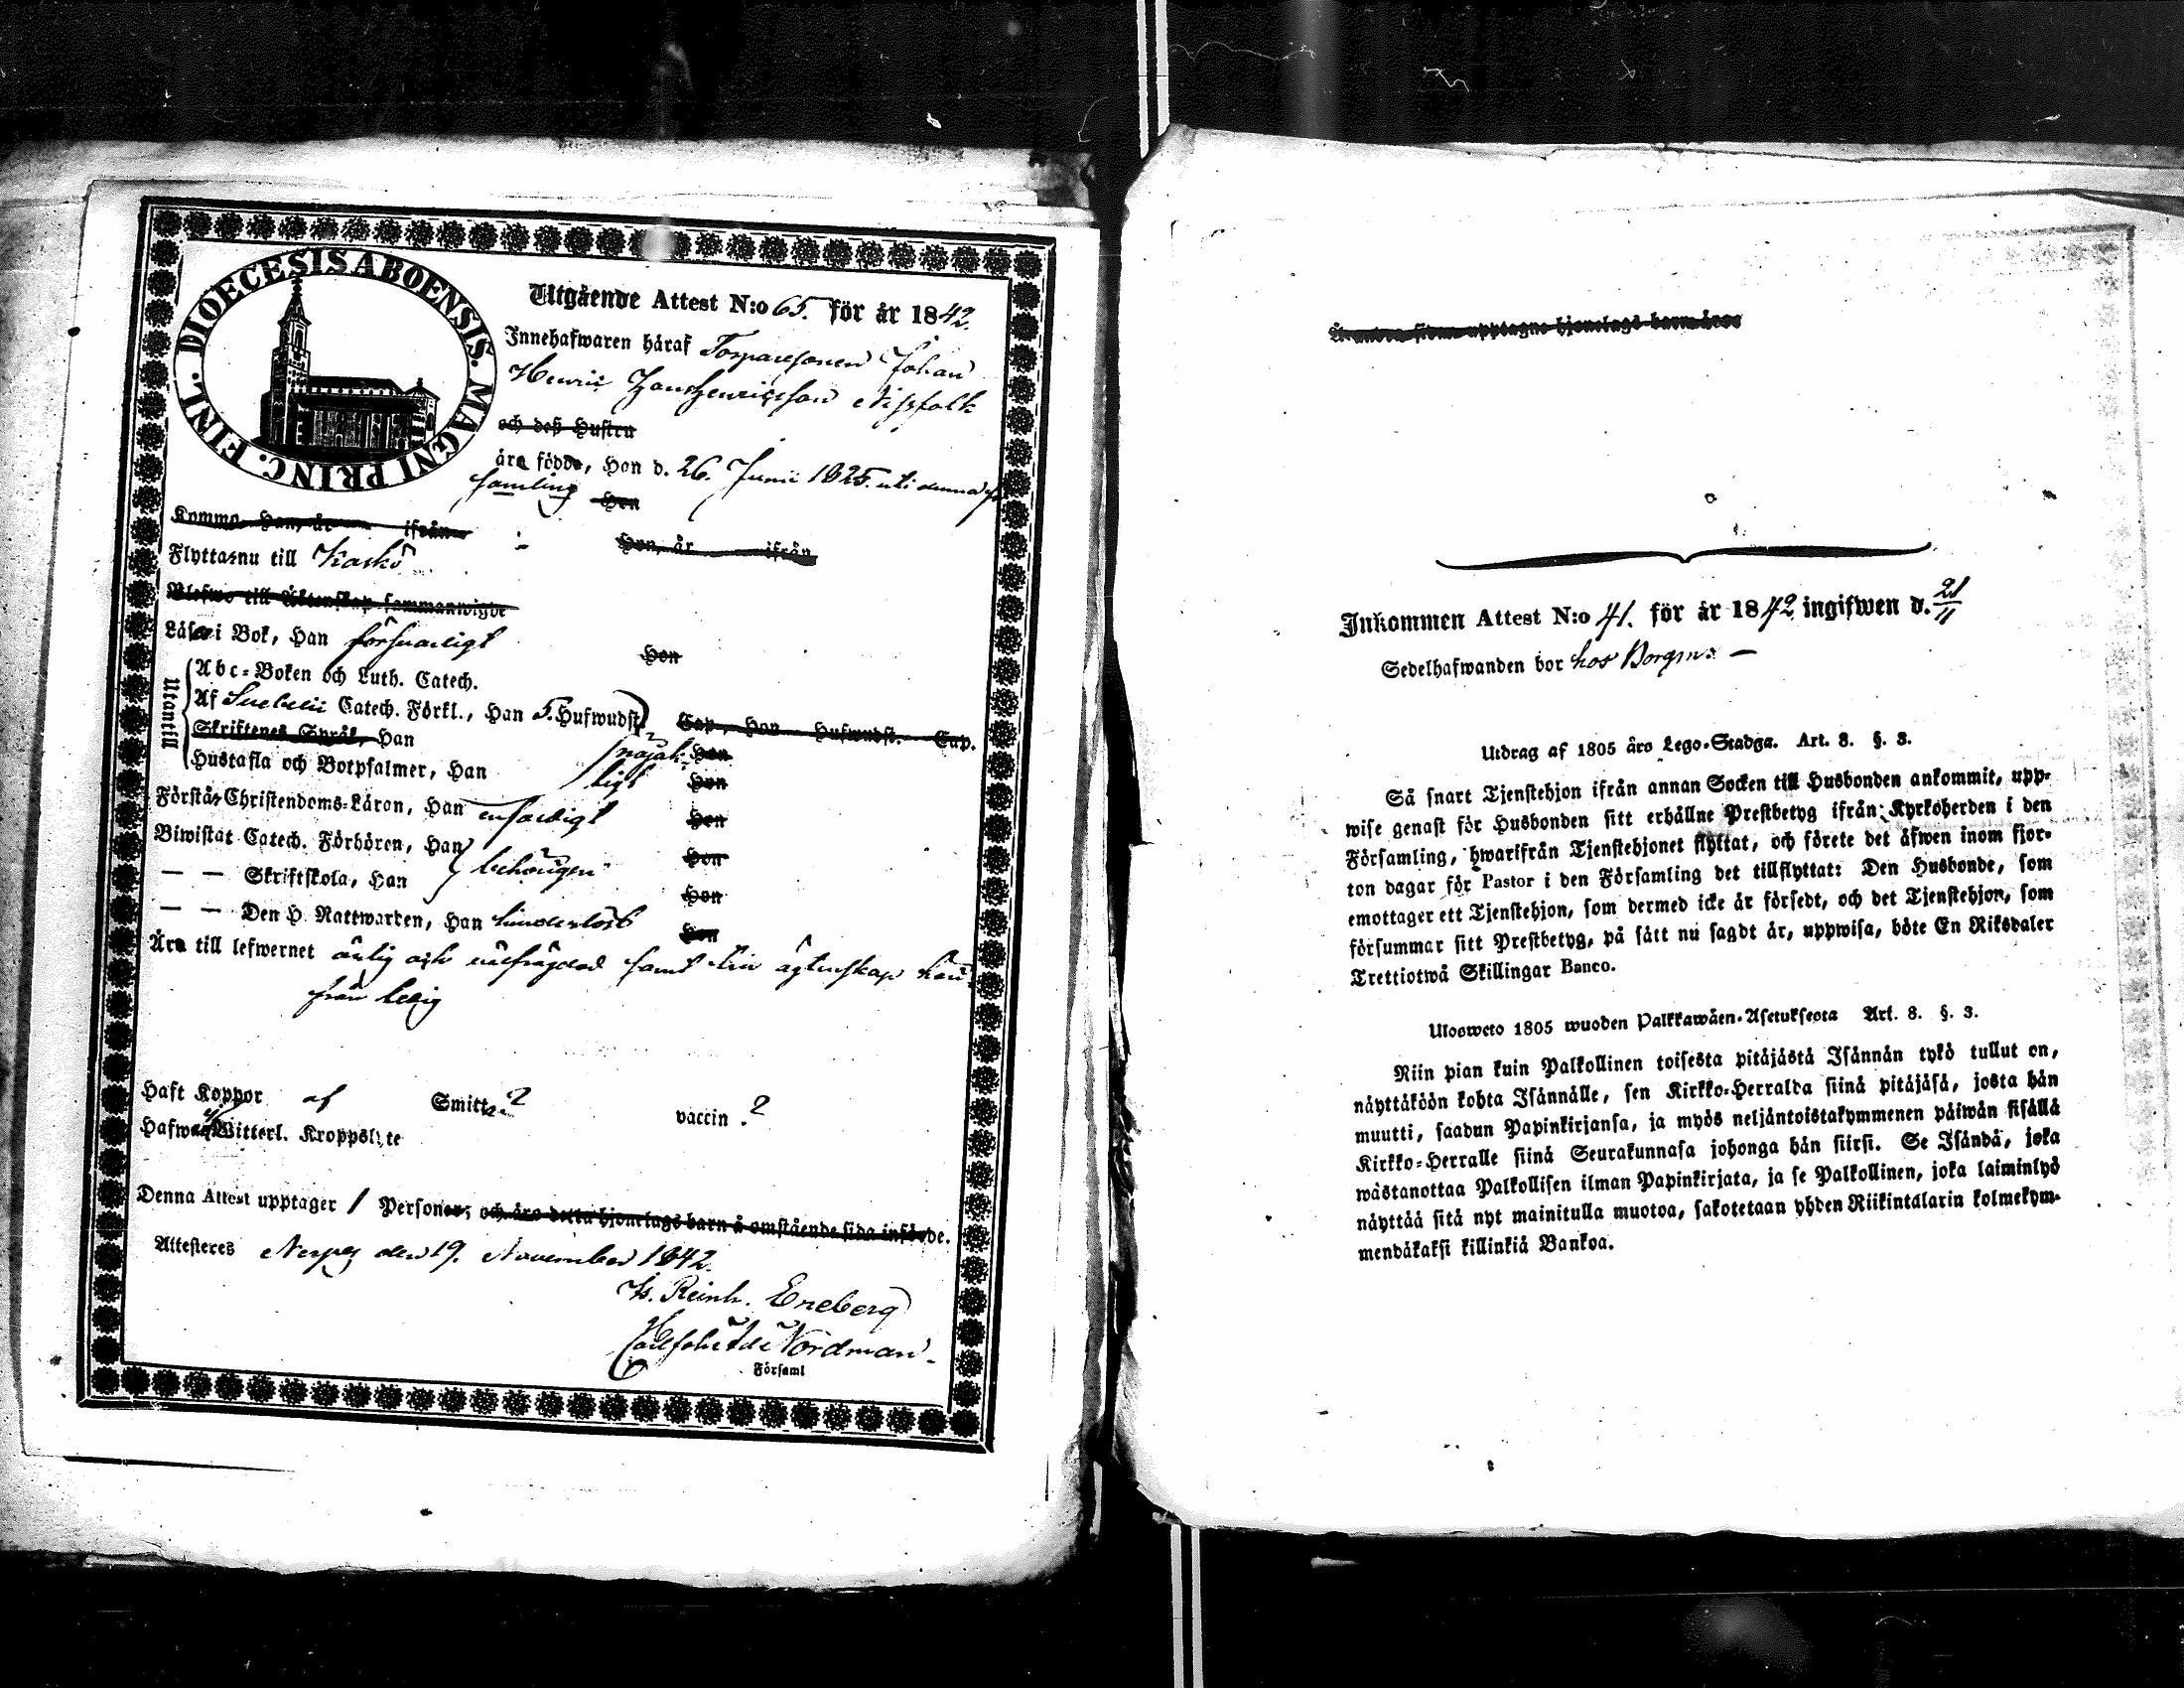 DIOECESIS ABOENSIS. MAGNI PRINC. FINL.
Utgående Attest N:o 65. för år 1842.
Innehafwaren häraf Torparesonen Johan
Henric Janshenricsson Nissfolk
och deß Hustru
äro födde, Han d. 26. Junii 1825. uti denna för
samling Hon
Kommo Han, år ifrån Hon, år ifrån
Flytta nu till Kaskö
Blefwo till Äktenskap sammanwigde
Läsa i Bok, Han försvarligt Hon
Utantill
Abc-Boken och Luth. Catech.
Af Svebelii Catech. Förkl., Han 5. Hufwudst. Cap., Hon Hufwudst. Cap.
Skriftenes Språk, Han nöjak Hon
Hustafla och Botpsalmer, Han ligt Hon
Förstå Christendoms-Läran, Han enfaldigt Hon
Biwistat Catech. Förhören, Han Hon
— — Skriftskola, Han behörigen Hon
— — Den H. Nattwarden, Han hinderlöst Hon
Äro till lefwernet ärlig och välfrägdad samt till ägtenskap här
från ledig
Haft Koppor af Smitta ? vaccin ?
Hafwa Witterl. Kroppslyte
Denna Attest upptager 1 Personer, och äro detta hjonelags barn å omstående sida införde.
Attesteres Nerpes den 19. November 1842.
Is. Reinh. Eneberg
Nordman.
Församl
Inkommen Attest N:o 41. för år 1842 ingifwen d. 21/11
Sedelhafwanden bor hos Borgm: —
Utdrag af 1805 års Lego-Stadga. Art. 8. §. 3.
Så snart Tjenstehjon ifrån annan Socken till Husbonden ankommit, upp-
wise genast för Husbonden sitt erhållne Prestbetyg ifrån Kyrkoherden i den
Församling, hwarifrån Tjenstehjonet flyttat, och förete det äfwen inom fjor-
ton dagar för Pastor i den Församling det tillflyttat: Den Husbonde, som
emottager ett Tjenstehjon, som dermed icke är försedt, och det Tjenstehjon, som
försummar sitt Prestbetyg, på sätt nu sagdt är, uppwisa, böte En Riksdaler
Trettiotwå Skillingar Banco.
Ulosweto 1805 wuoden Palkkawäen-Asetuksesta Art. 8. §. 3.
Niin pian kuin Palkollinen toisesta pitäjästä Isännän tykö tullut on,
näyttäköön kohta Isännälle, sen Kirkko-Herralda siinä pitäjäsä, josta hän
muutti, saadun Papinkirjansa, ja myös neljäntoistakymmenen päiwän sisällä
Kirkko-Herralle siinä Seurakunnasa johonga hän siirsi. Se Isändä, joka
wästanottaa Palkollisen ilman Papinkirjata, ja se Palkollinen, joka laiminlyö
näyttää sitä nyt mainitulla muotoa, sakotetaan yhden Riikintalarin kolmekym-
mendäkaksi killinkiä Bankoa.